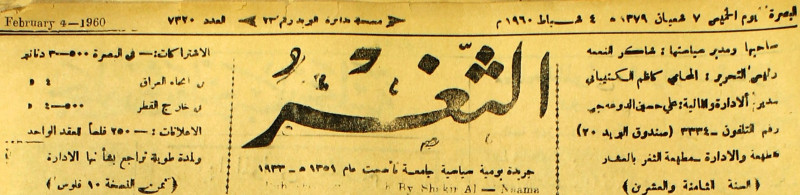 البصرة يوم الخميس ٧ شعبان ١٣٧٩ ه ٤ شباط ١٩٦٠ م
العدد ٧٣٢٠
February 4—1960
صاحبها ومدير سياستها: شاكر النعمه
رئيس التحرير: المحامي كاظم
مدير الادارة والمالية: علي حسين
رقم التلفون — ٣٣٣٤ (صندوق البريد ٢٠)
مطبعة والادارة — مطبعة الثغر بالعشار
(السنة الثامنة والعشرين)
الثغر
جريدة يومية سياسية جامعة تأسست عام ١٣٥١ ه — ١٩٣٣
By Shakir Al — Naama
الاشتراكات: — في البصرة ٥٠٠ — ٣ دنانير
في انحاء العراق ٤ ه
في خارج القطر ٥٠٠ — ٤ ه
الاعلانات: — ٢٥٠ فلساً للعقد الواحد
ولمدة طويلة تراجع بشأنها الادارة
(ثمن النسخة ١٠ فلوس)